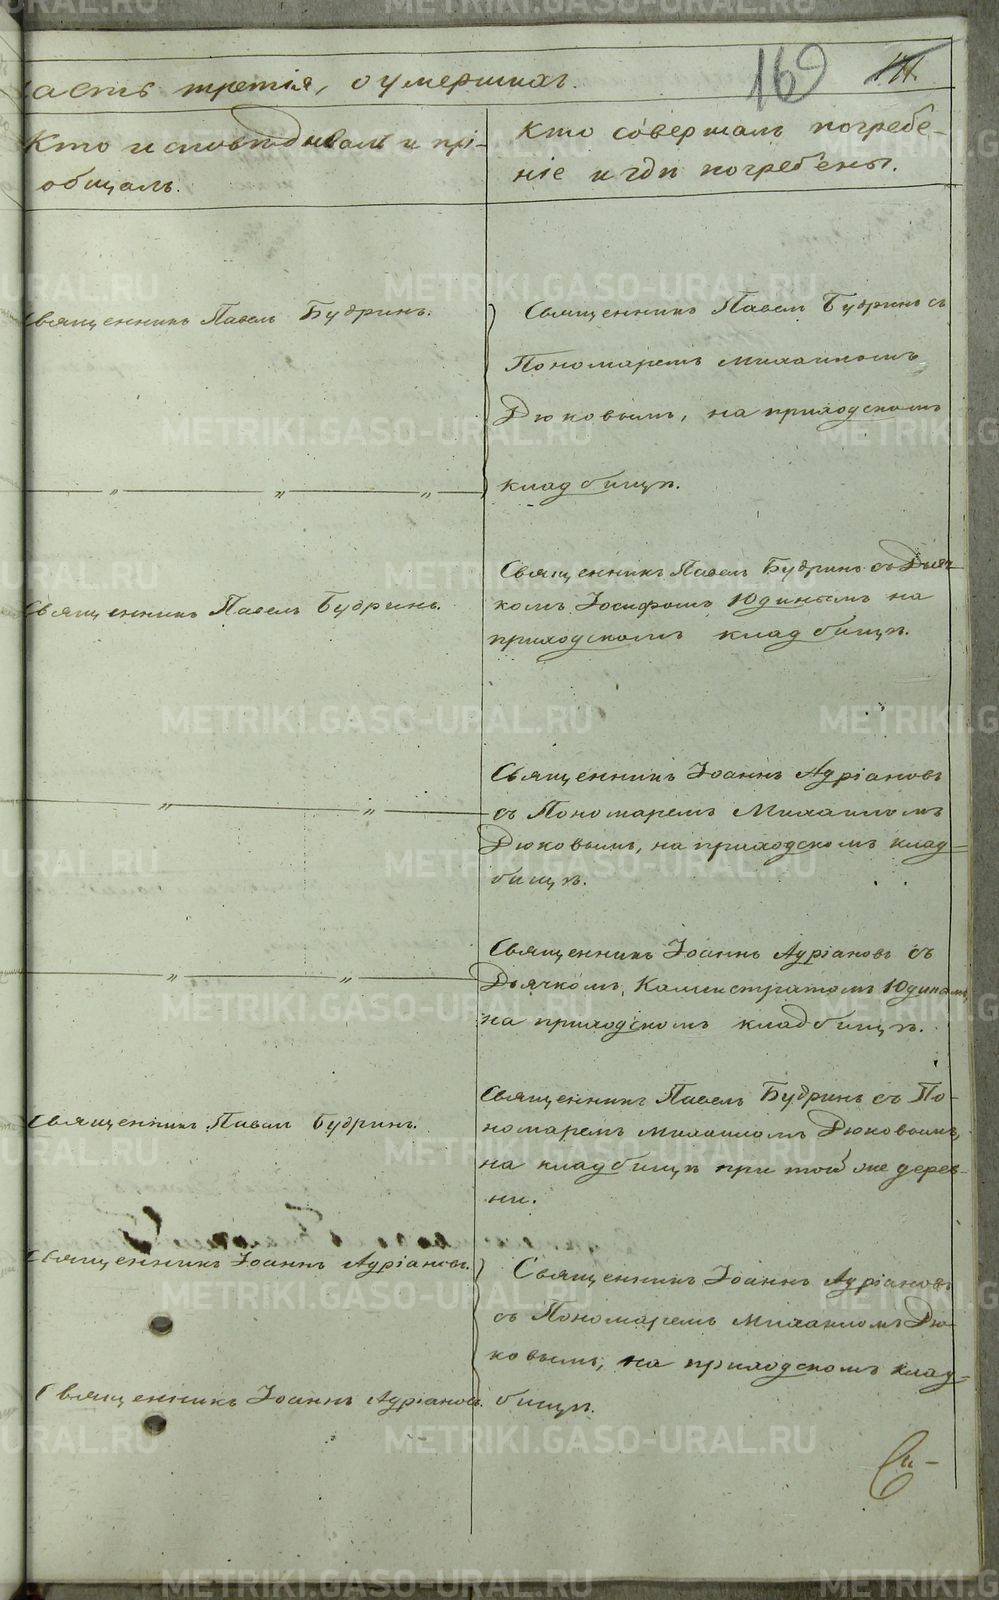 169
часть третія, о умершихъ.
Кто исповѣдывалъ и прі-
общалъ.
Кто совершалъ погребе-
ніе и гдѣ погребены.
Священникъ Павелъ Будринъ.
Священникъ Павелъ Будринъ съ
Пономаремъ Михаиломъ
Дюковымъ, на приходскомъ
кладбищѣ.
Священникъ Павелъ Будринъ.
Священникъ Павелъ Будринъ съ Дьяч
комъ Іосифомъ Юдинымъ на
приходскомъ кладбищѣ.
Священникъ Іоаннъ Адріановъ
съ Пономаремъ Михаиломъ
Дюковымъ, на приходскомъ клад-
бищѣ.
Священникъ Іоаннъ Адріановъ съ
Дьячкомъ Каллистратомъ Юдинымъ,
на приходскомъ кладбищѣ.
Священникъ Павелъ Будринъ.
Священникъ Павелъ Будринъ съ По-
номаремъ Михаиломъ Дюковымъ,
на кладбищѣ при той же дерев-
ни.
Священникъ Іоаннъ Адріановъ.
Священникъ Іоаннъ Адріановъ
съ Пономаремъ Михаиломъ Дю-
ковымъ, на приходскомъ клад-
бищѣ.
Священникъ Іоаннъ Адріановъ.
METRIKI.GASO-URAL.RU